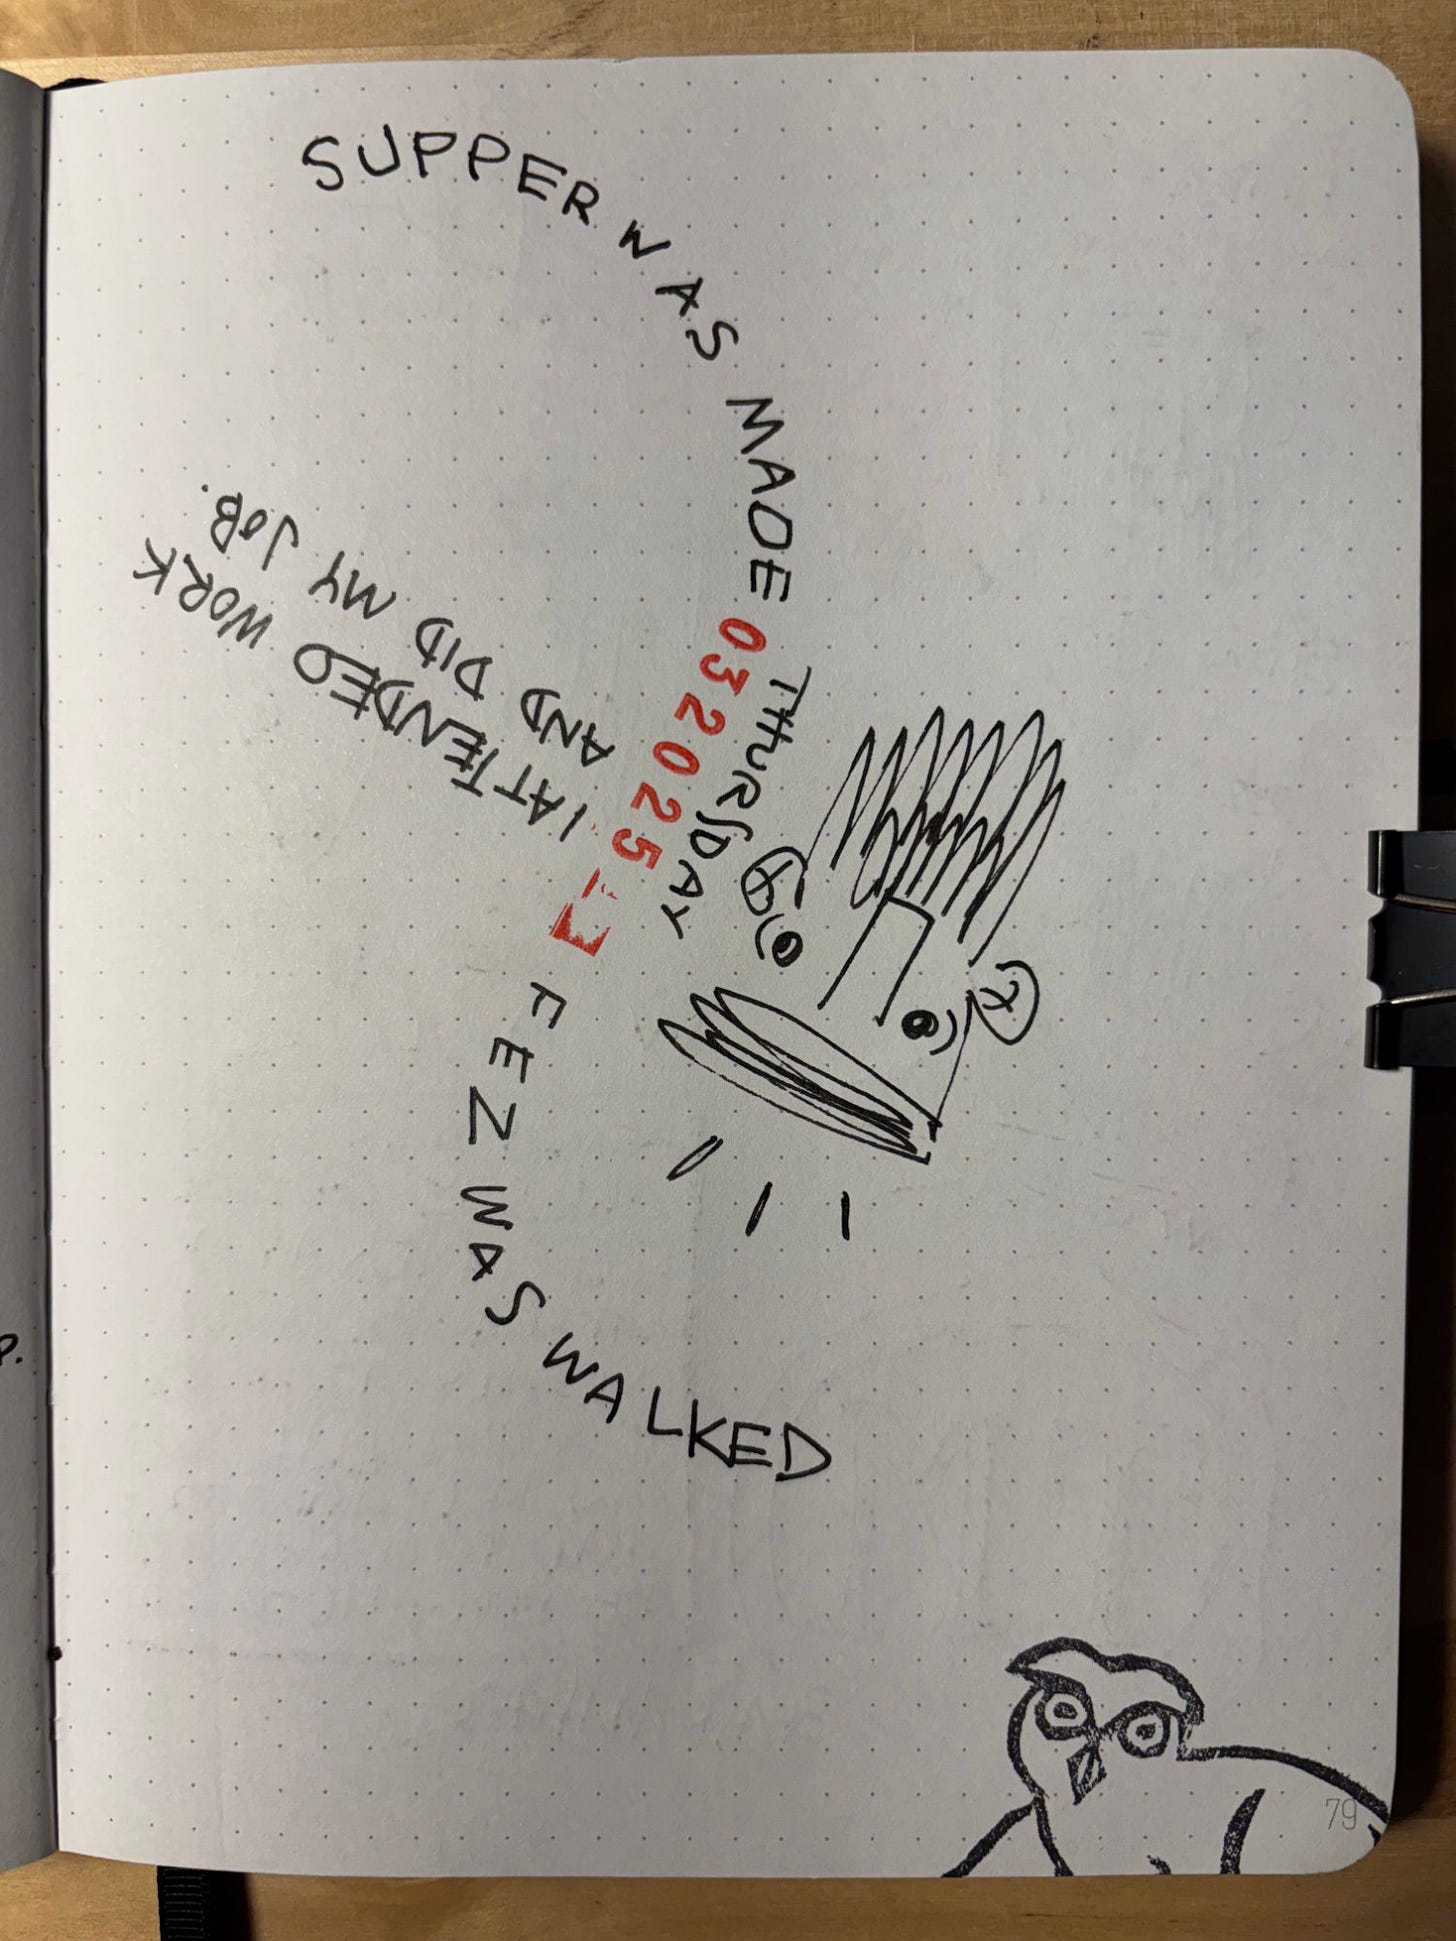 SUPPER WAS MADE
032025
THURSDAY
I ATTENDED WORK
AND DID MY JOB.
FEZ WAS WALKED
79
P.